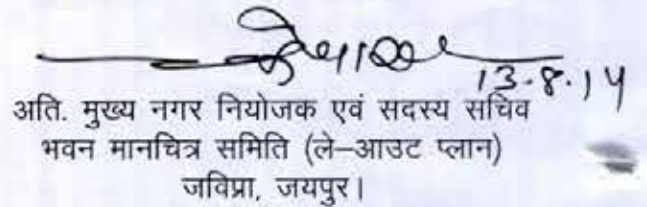 13.8.14
अति. मुख्य नगर नियोजक एवं सदस्य सचिव
भवन मानचित्र समिति (ले–आउट प्लान)
जविप्रा, जयपुर।